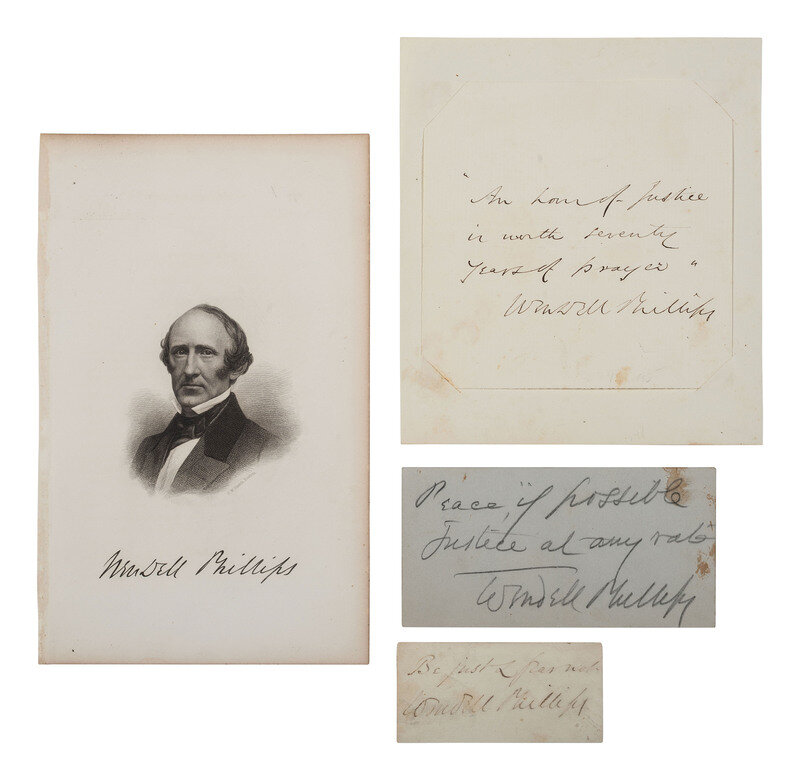 Wendell Phillips
"An hour of Justice
is worth seventy
years of prayer"
Wendell Phillips
Peace, if possible
Justice at any rate
Wendell Phillips
Be just & fear not
Wendell Phillips